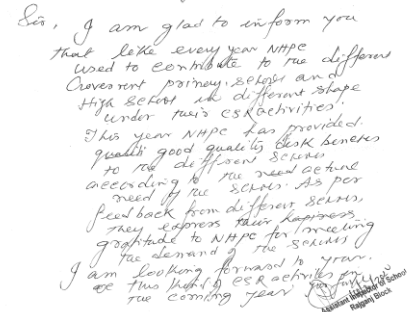 Sir, I am glad to inform you
that like every year NHPC
used to contribute to the different
Goverment primary, schools and
High School in different shape
under their CSR activities.
This year NHPC has provided
good quality desk benches
to the different schools
according to the need actual
need of the schools. As per
feedback from different schools,
they express their happiness
gratitude to NHPC for meeting
the demand of the schools
I am looking forward to your
this kind of CSR activities in
the coming year
Assistant Inspector of School
Rajganj Block